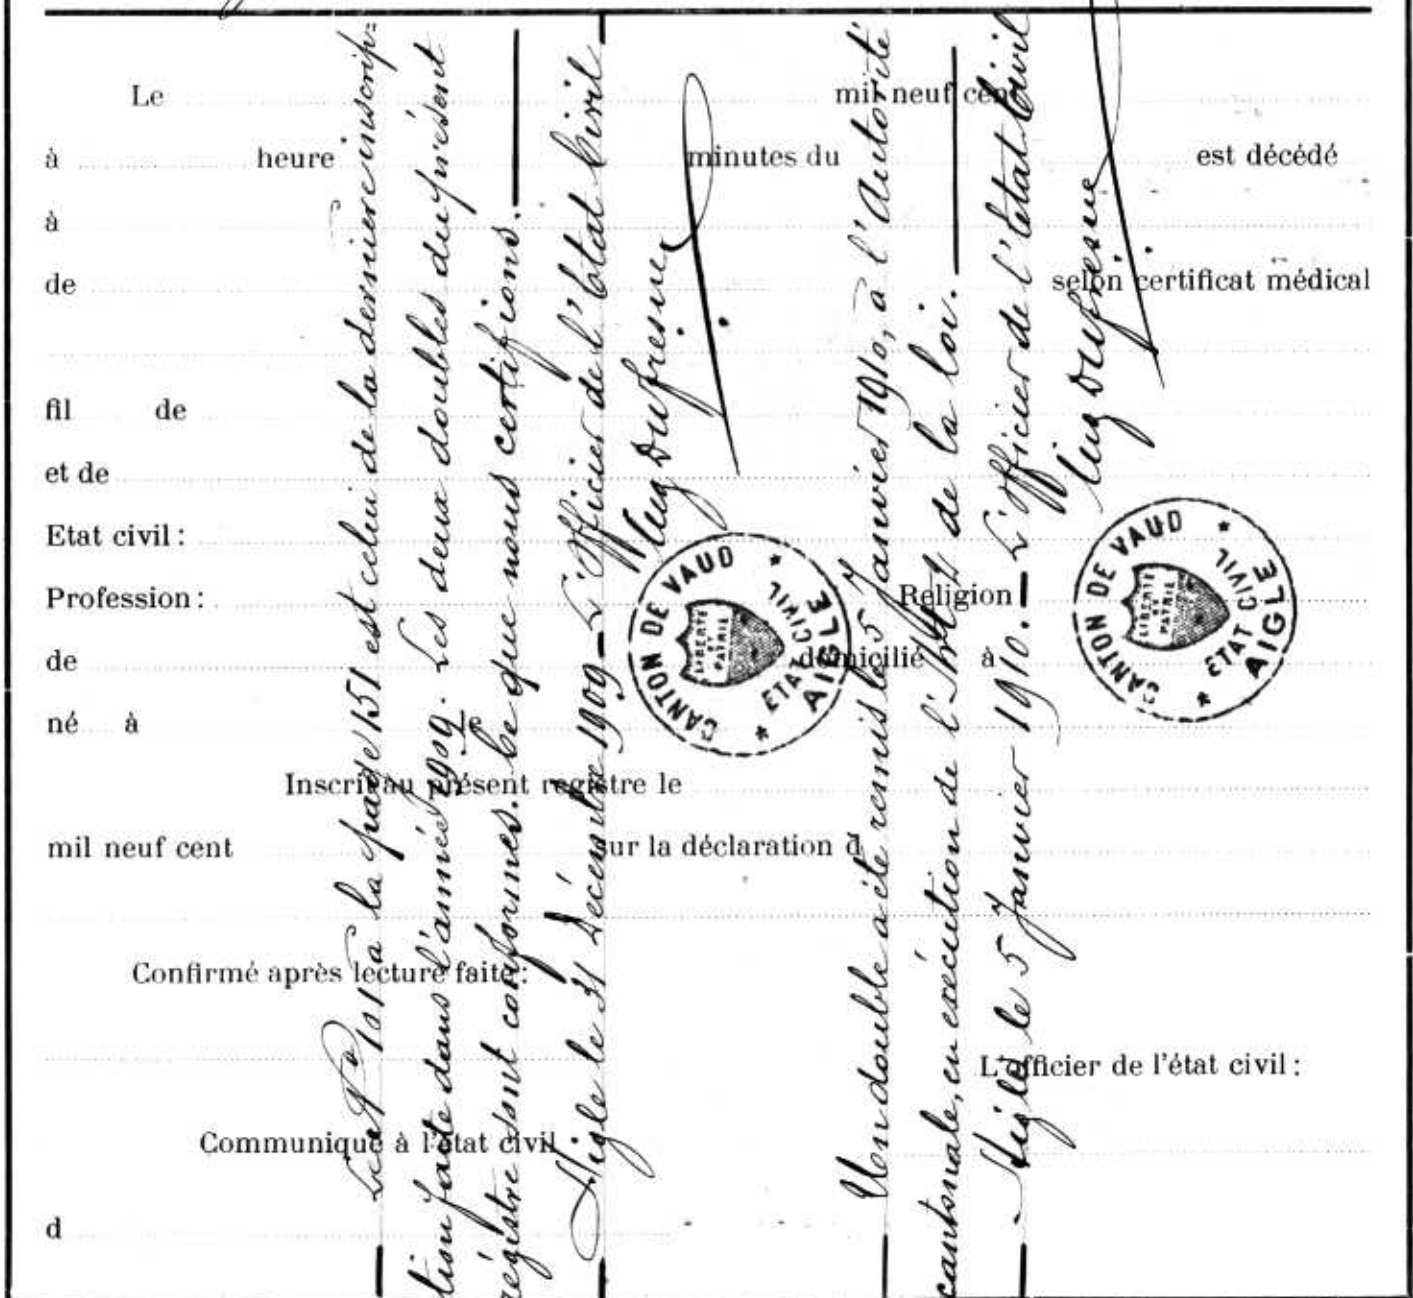 Le mil neuf cent
à heure minutes du est décédé
à
de selon certificat médical
fil de
et de
Etat civil:
Profession: Religion
de domicilié à
né à le
Inscrit au présent registre le
mil neuf cent sur la déclaration d
Confirmé après lecture faite:
L'officier de l'état civil:
Communiqué à l'état civil
d
Le No 151 à la page 151 est celui de la dernière inscrip=
tion faite dans l'année 1909. Les deux doubles du présent
régistre sont conformes. Ce que nous certifions
Aigle le 31 Décembre 1909 L'Officier de l'Etat Civil
Dufresne
CANTON DE VAUD
LIBERTÉ ET PATRIE
ETAT CIVIL
AIGLE
Un double a été remis le 5 Janvier 1910, à l'Autorité
cantonale, en exécution de l'Art 2 de la loi.
Aigle le 5 Janvier 1910. L'Officier de l'Etat Civil
Dufresne
CANTON DE VAUD
LIBERTÉ ET PATRIE
ETAT CIVIL
AIGLE